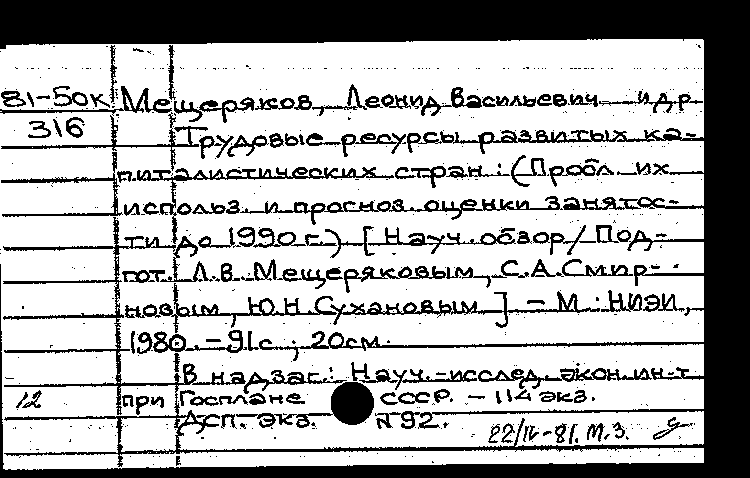 81-50к Мещеряков, Леонид Васильевич и др
316 Трудовые ресурсы развитых ка-
питалистических стран : (Пробл. их
использ. и прогноз. оценки занятос-
ти до 1990 г.) [Науч. обзор / Под-
гот. Л.В. Мещеряковым, С.А. Смир-
новым, Ю.Н. Сухановым] - М : НИЭИ,
1980. - 91 с ; 20 см.
В надзаг.: Науч.-исслед. экон. ин-т
12 при Госплане СССР. - 114 экз.
Дсп. экз. N 92.
22/IV-81. М.З.